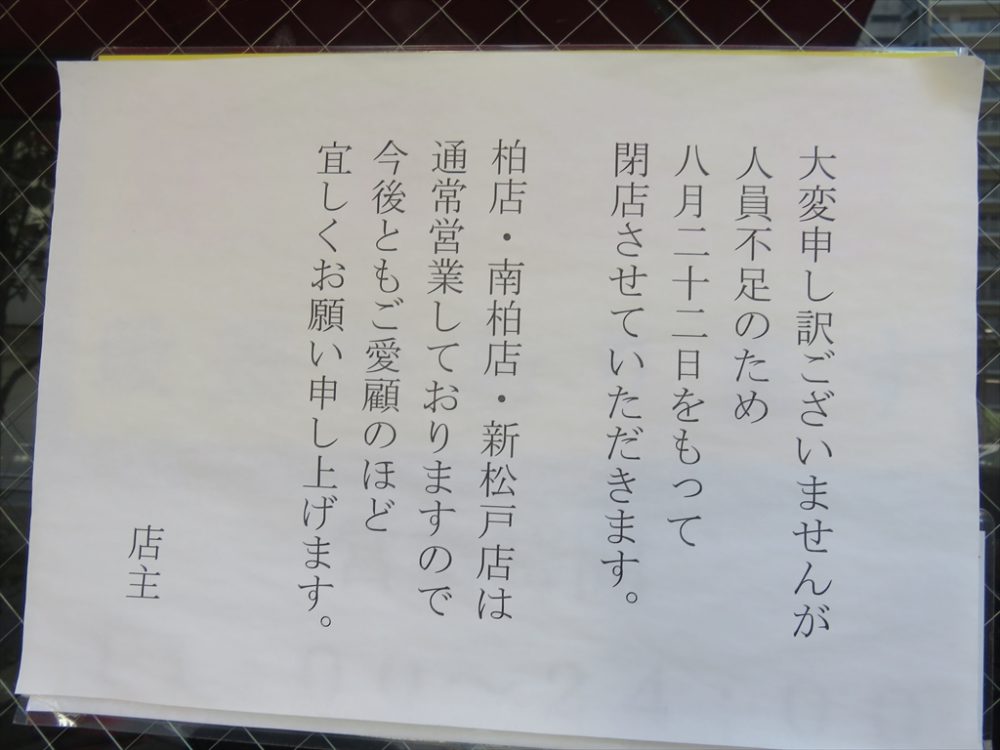 大変申し訳ございませんが
人員不足のため
八月二十二日をもって
閉店させていただきます。
柏店・南柏店・新松戸店は
通常営業しておりますので
今後ともご愛顧のほど
宜しくお願い申し上げます。
店主